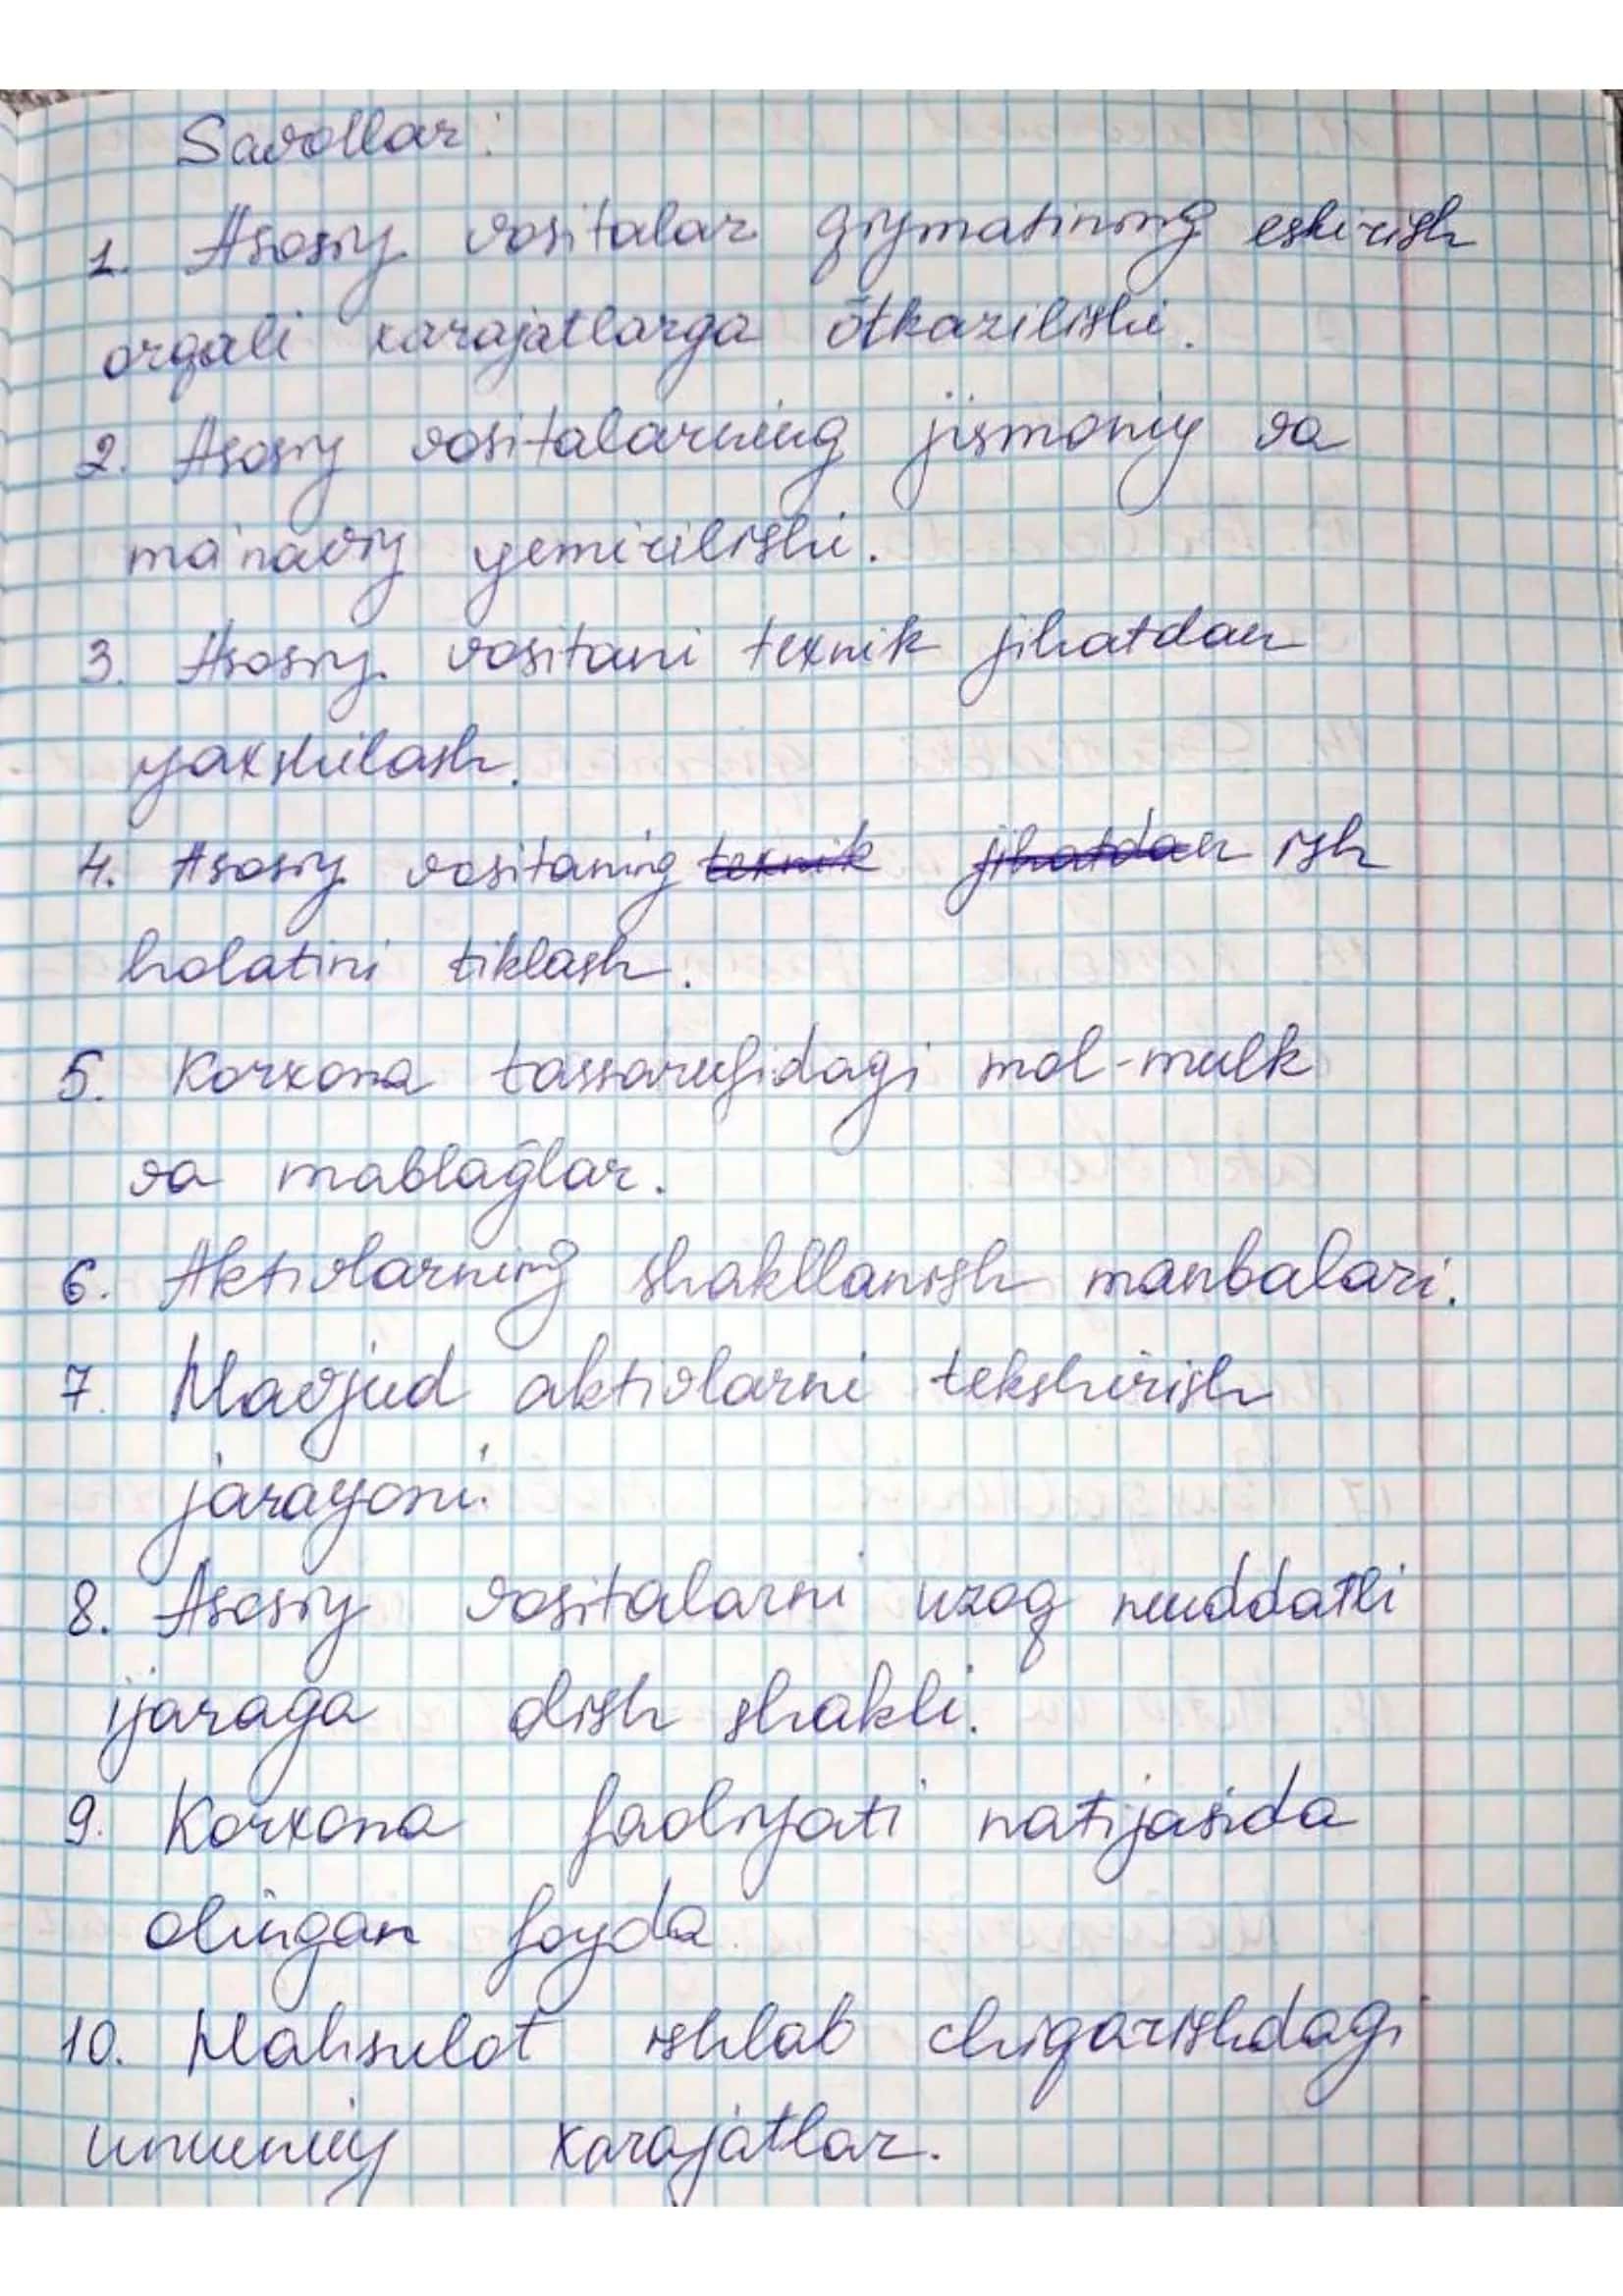 Savollar:
1. Asosiy vositalar qiymatining eskirish
orqali xarajatlarga ōtkazilishi.
2. Asosiy vositalarning jismoniy va
ma'naviy yemirilishi.
3. Asosiy vositani texnik jihatdan
yaxshilash.
4. Asosiy vositaning texnik jihatdan ish
holatini tiklash.
5. Korxona tassarufidagi mol-mulk
va mablaḡlar.
6. Aktivlarning shakllanish manbalari.
7. Mavjud aktivlarni tekshirish
jarayoni.
8. Asosiy vositalarni uzoq muddatli
ijaraga olish shakli.
9. Korxona faoliyati natijasida
olingan foyda.
10. Mahsulot ishlab chiqarishdagi
umumiy xarajatlar.